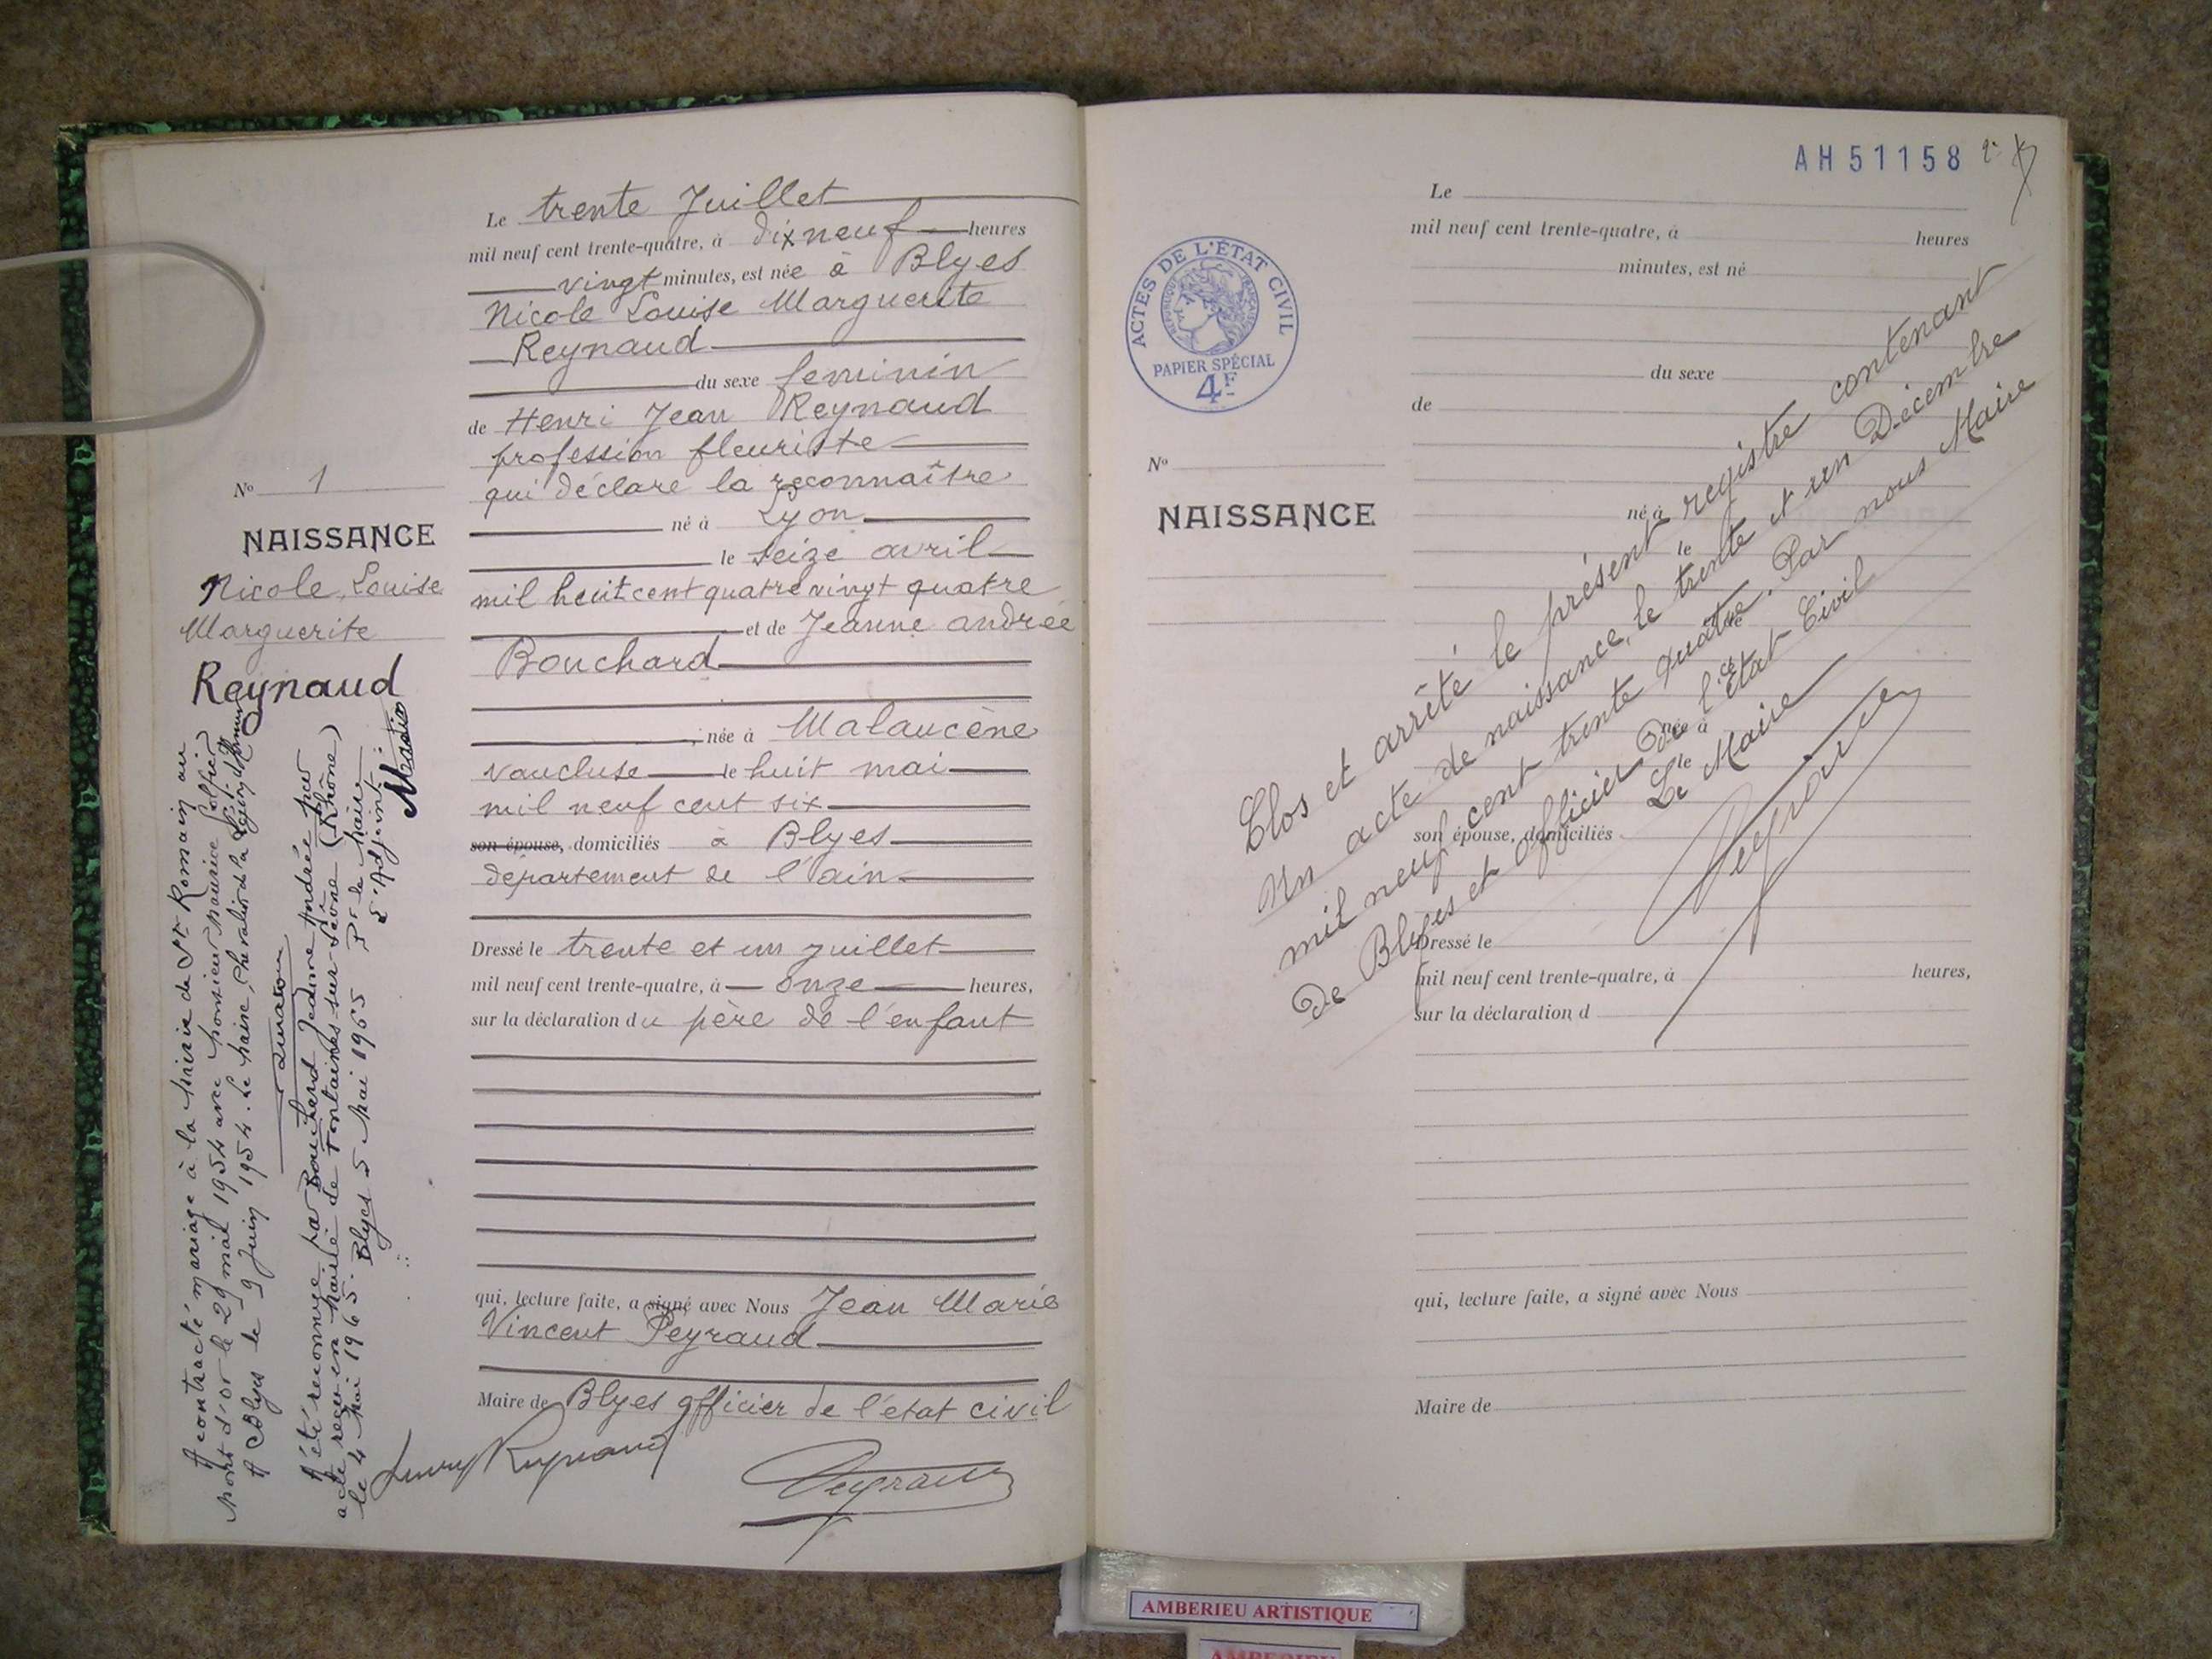 Le trente Juillet
mil neuf cent trente-quatre, à dix neuf heures
vingt minutes, est née à Blyes
Nicole Louise Marguerite
Reynaud
du sexe feminin
de Henri Jean Reynaud
profession fleuriste
qui déclare la reconnaître
né à Lyon
le seize avril
mil huit cent quatre vingt quatre
et de Jeanne andrée
Bouchard
, née à Malaucène
Vaucluse le huit mai
mil neuf cent six
son épouse, domiciliés à Blyes
département de l'ain
Dressé le trente et un juillet
mil neuf cent trente-quatre, à onze heures,
sur la déclaration du père de l'enfant
qui, lecture faite, a signé avec Nous Jean Marie
Vincent Peyraud
Maire de Blyes officier de l'état civil
Henry Reynaud
Peyraud
No 1
NAISSANCE
Nicole, Louise
Marguerite
Reynaud
A contracté mariage à la Mairie de St Romain au
Mont d'or le 29 mai 1954 avec Monsieur Maurice
A Blyes le 9 Juin 1954. Le Maire, Chevalier de la Légion d'Honneur
A été reconnue par Bouchard Jeanne Andrée par
acte reçu en Mairie de Fontaines-sur-Saône (Rhône)
le 4 Mai 1965. Blyes 5 Mai 1965 Pr le Maire
L'Adjoint:
AH51158
ACTES DE L'ÉTAT CIVIL
RÉPUBLIQUE FRANÇAISE
PAPIER SPÉCIAL
4F
No
NAISSANCE
Le
mil neuf cent trente-quatre, à heures
minutes, est né
du sexe
de
né à
le
et de
née à
le
son épouse, domiciliés
Dressé le
mil neuf cent trente-quatre, à heures,
sur la déclaration d
qui, lecture faite, a signé avec Nous
Maire de
Clos et arrêté le présent registre contenant
Un acte de naissance, le trente et un Décembre
mil neuf cent trente quatre. Par nous Maire
de Blyes et officier de l'Etat Civil
Le Maire
Peyraud
AMBERIEU ARTISTIQUE
AMBERIEU